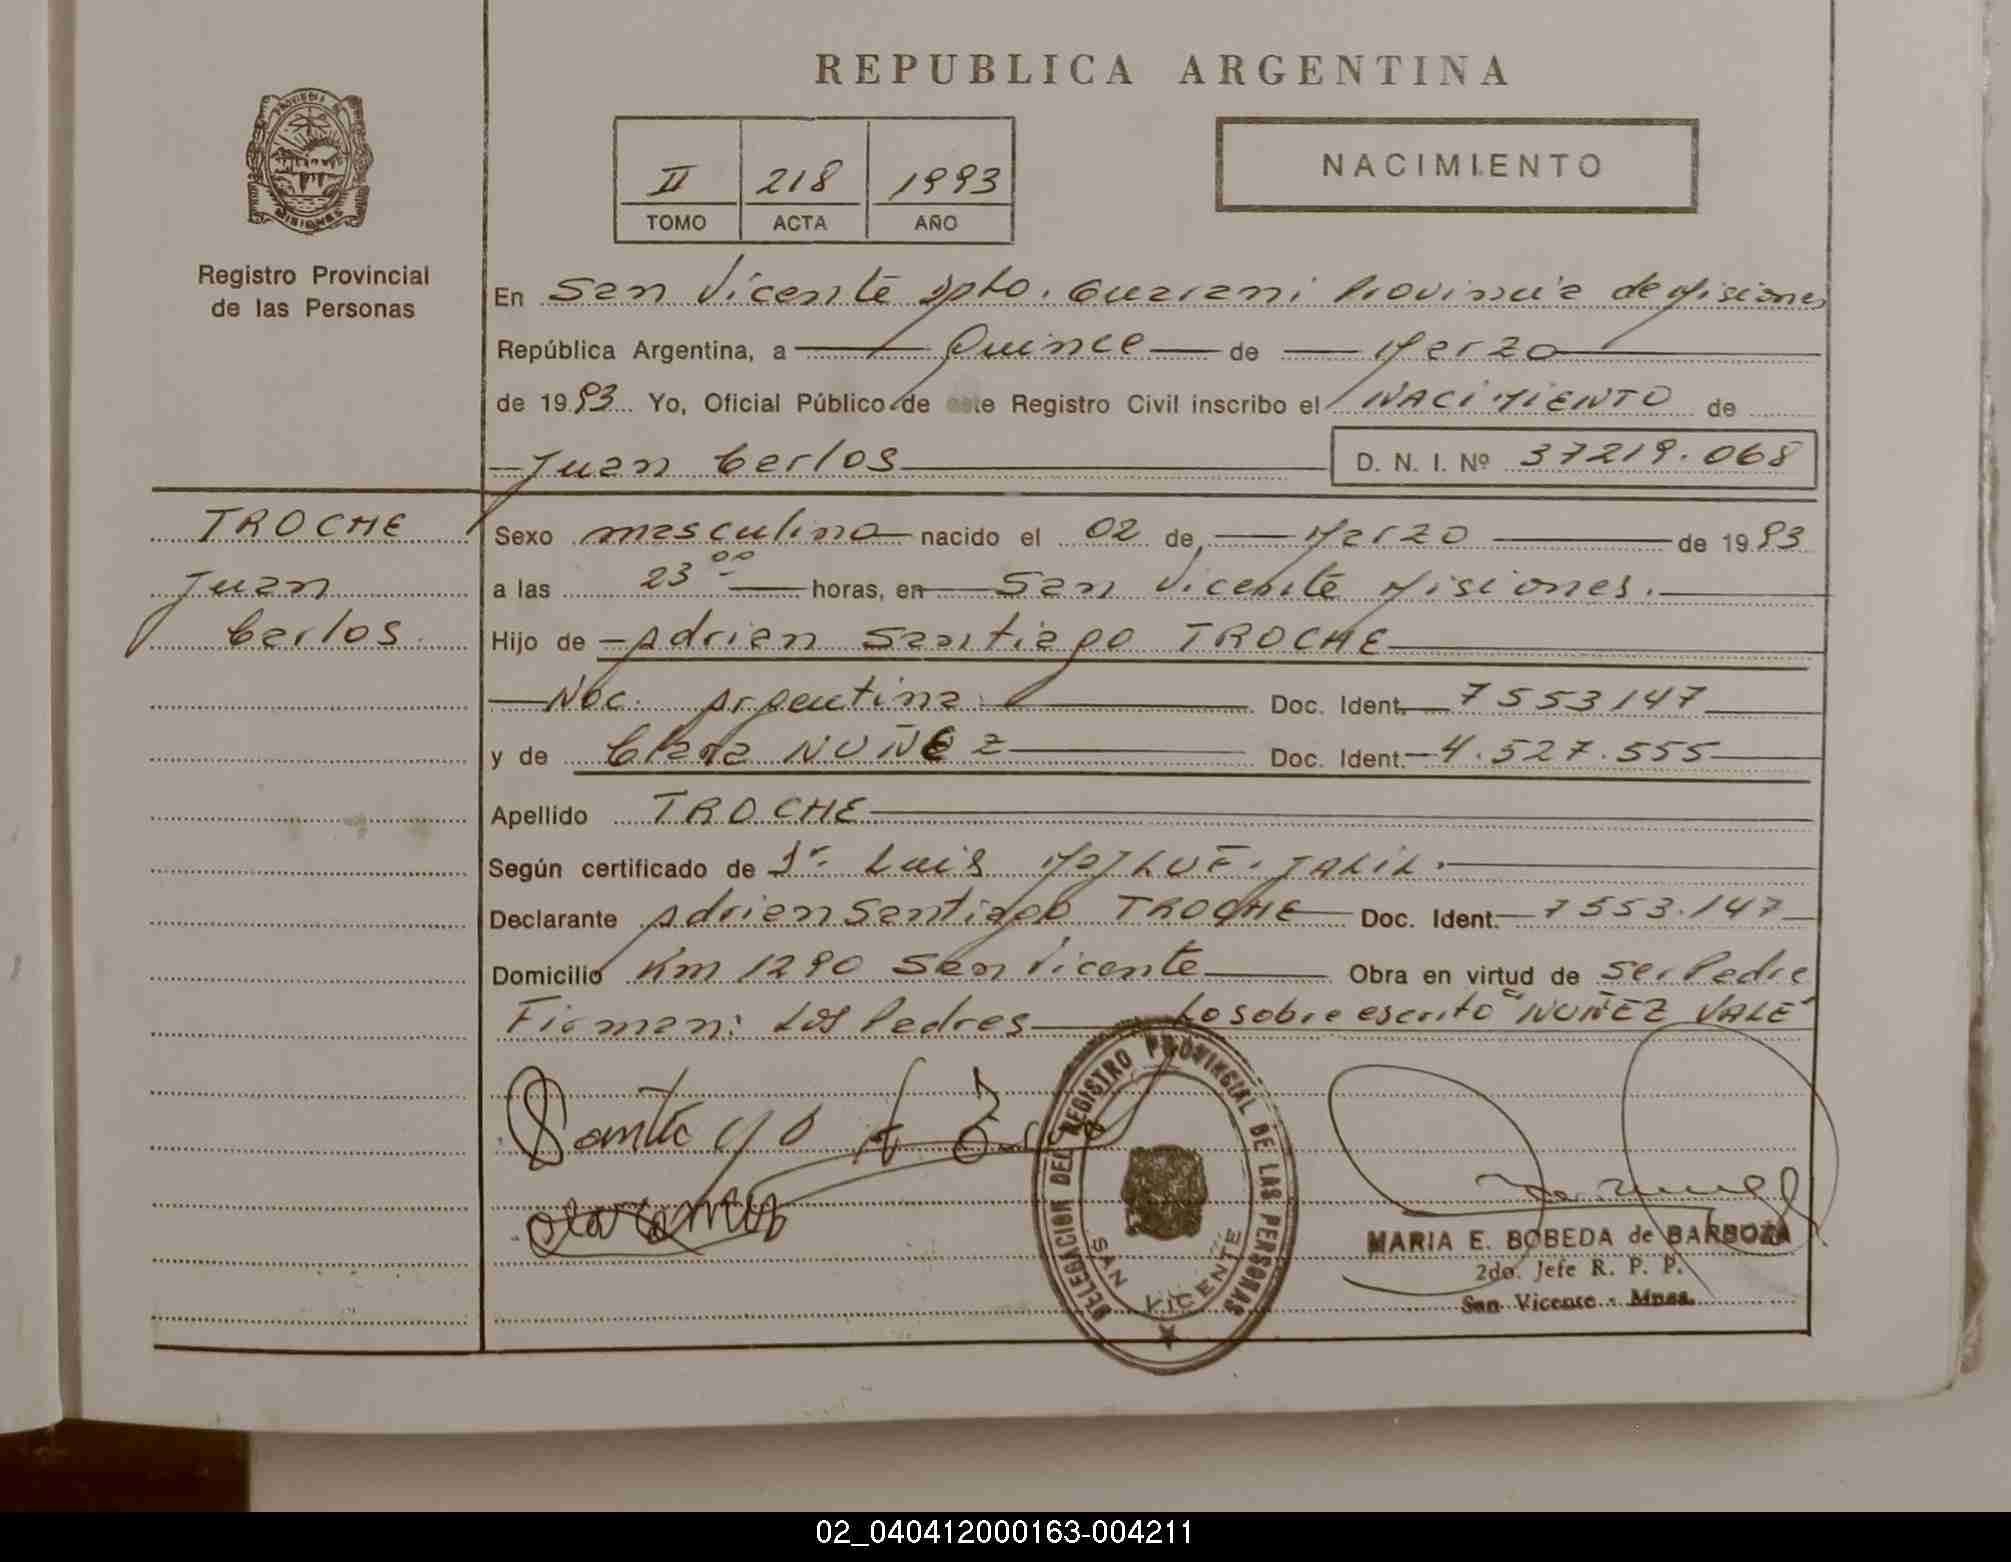 REPUBLICA ARGENTINA
PROVINCIA DE
MISIONES
II 218 1993
TOMO ACTA AÑO
NACIMIENTO
Registro Provincial
de las Personas
En San Vicente Dpto. Guarani Provincia de Misiones
República Argentina, a Quince de Marzo
de 1993 Yo, Oficial Público de este Registro Civil inscribo el NACIMIENTO de
Juan Carlos D. N. I. Nº 37219.068
TROCHE
Juan
Carlos.
Sexo masculino nacido el 02 de Marzo de 1993
a las 23 00 horas, en San Vicente Misiones.
Hijo de Adrian Santiago TROCHE
Nac. Argentina. Doc. Ident. 7553147
y de Clara NUÑEZ Doc. Ident. 4.527.555
Apellido TROCHE
Según certificado de Luis JALIL.
Declarante Adrian Santiago TROCHE Doc. Ident. 7553.147
Domicilio Km 1290 San Vicente Obra en virtud de ser Padre
Firman: Los Padres Lo sobre escrito "NUÑEZ VALE"
Santiago
DELEGACION DEL REGISTRO PROVINCIAL DE LAS PERSONAS
SAN VICENTE
MARIA E. BOBEDA de BARBOZA
2do. Jefe R. P. P.
San Vicente - Mnes.
02_040412000163-004211